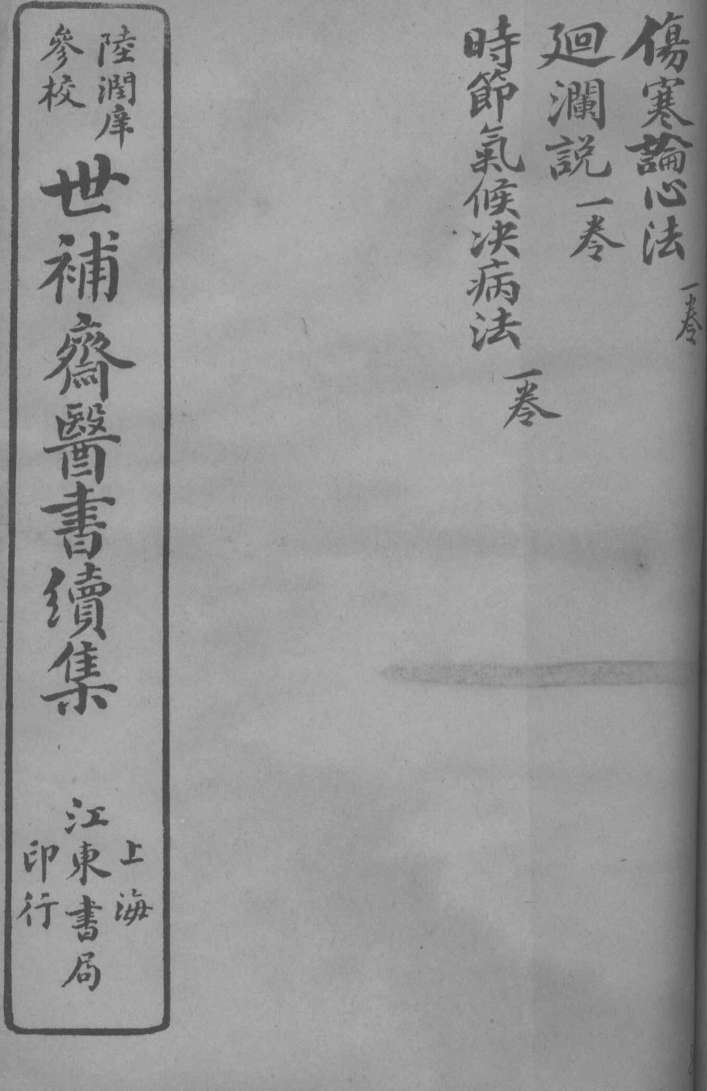 傷寒論心法一卷
廻瀾説一卷
時節氣候决病法一卷
陸潤庠
參校
世補齋醫書續集
上海
江東書局
印行